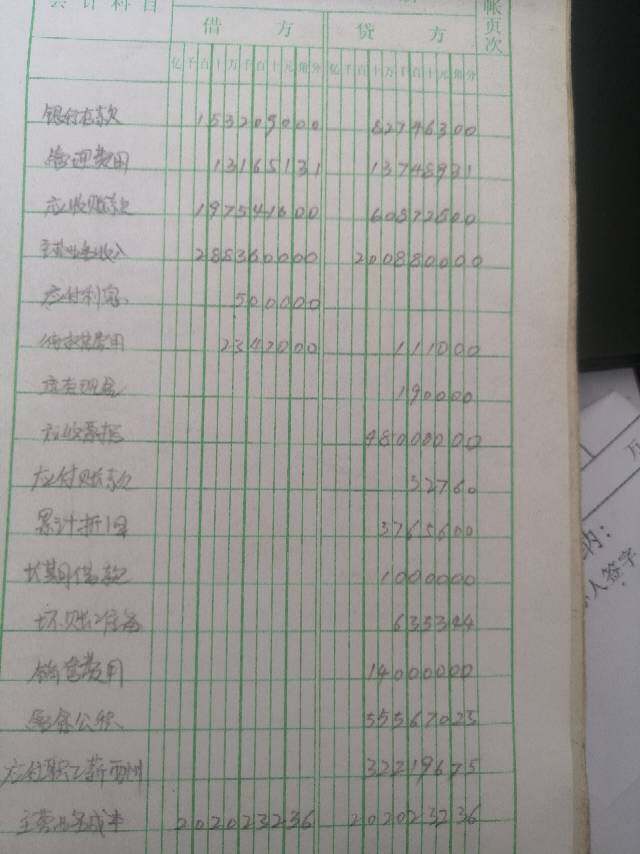 会计科目
借 方 贷 方 帐页次
亿千百十万千百十元角分 亿千百十万千百十元角分
银行存款 153209000 82746300
管理费用 13165131 13748931
应收账款 197541600 60872500
主营业务收入 288360000 200880000
应付利息 500000
2342000 111000
库存现金 190000
应收票据 48000000
应付账款 52760
累计折旧 3765600
长期借款 1000000
坏账准备 635344
销售费用 14000000
盈余公积 55567025
应付职工薪酬 32219675
主营业务成本 202023236 202023236
内:
人签字